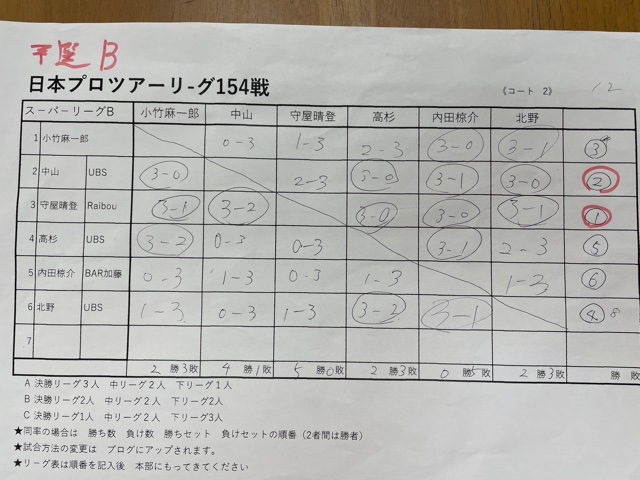 予選 B
日本プロツアーリ-グ154戦 《コート 2》 12
スーパーリーグB 小竹麻一郎 中山 守屋晴登 高杉 内田椋介 北野
1 小竹麻一郎 0-3 1-3 2-3 3-0 3-1 ③
2 中山 UBS 3-0 2-3 3-0 3-1 3-0 ②
3 守屋晴登 Raibou 3-1 3-2 3-0 3-0 3-1 ①
4 高杉 UBS 3-2 0-3 0-3 3-1 2-3 ⑤
5 内田椋介 BAR加藤 0-3 1-3 0-3 1-3 1-3 ⑥
6 北野 UBS 1-3 0-3 1-3 3-2 3-1 ④ 8
7
2勝3敗 4勝1敗 5勝0敗 2勝3敗 0勝5敗 2勝3敗 勝 敗
A 決勝リーグ3人 中リーグ2人 下リーグ1人
B 決勝リーグ2人 中リーグ2人 下リーグ2人
C 決勝リーグ1人 中リーグ2人 下リーグ3人
★同率の場合は 勝ち数 負け数 勝ちセット 負けセットの順番(2者間は勝者)
★試合方法の変更は ブログにアップされます。
★リーグ表は順番を記入後 本部にもってきてください